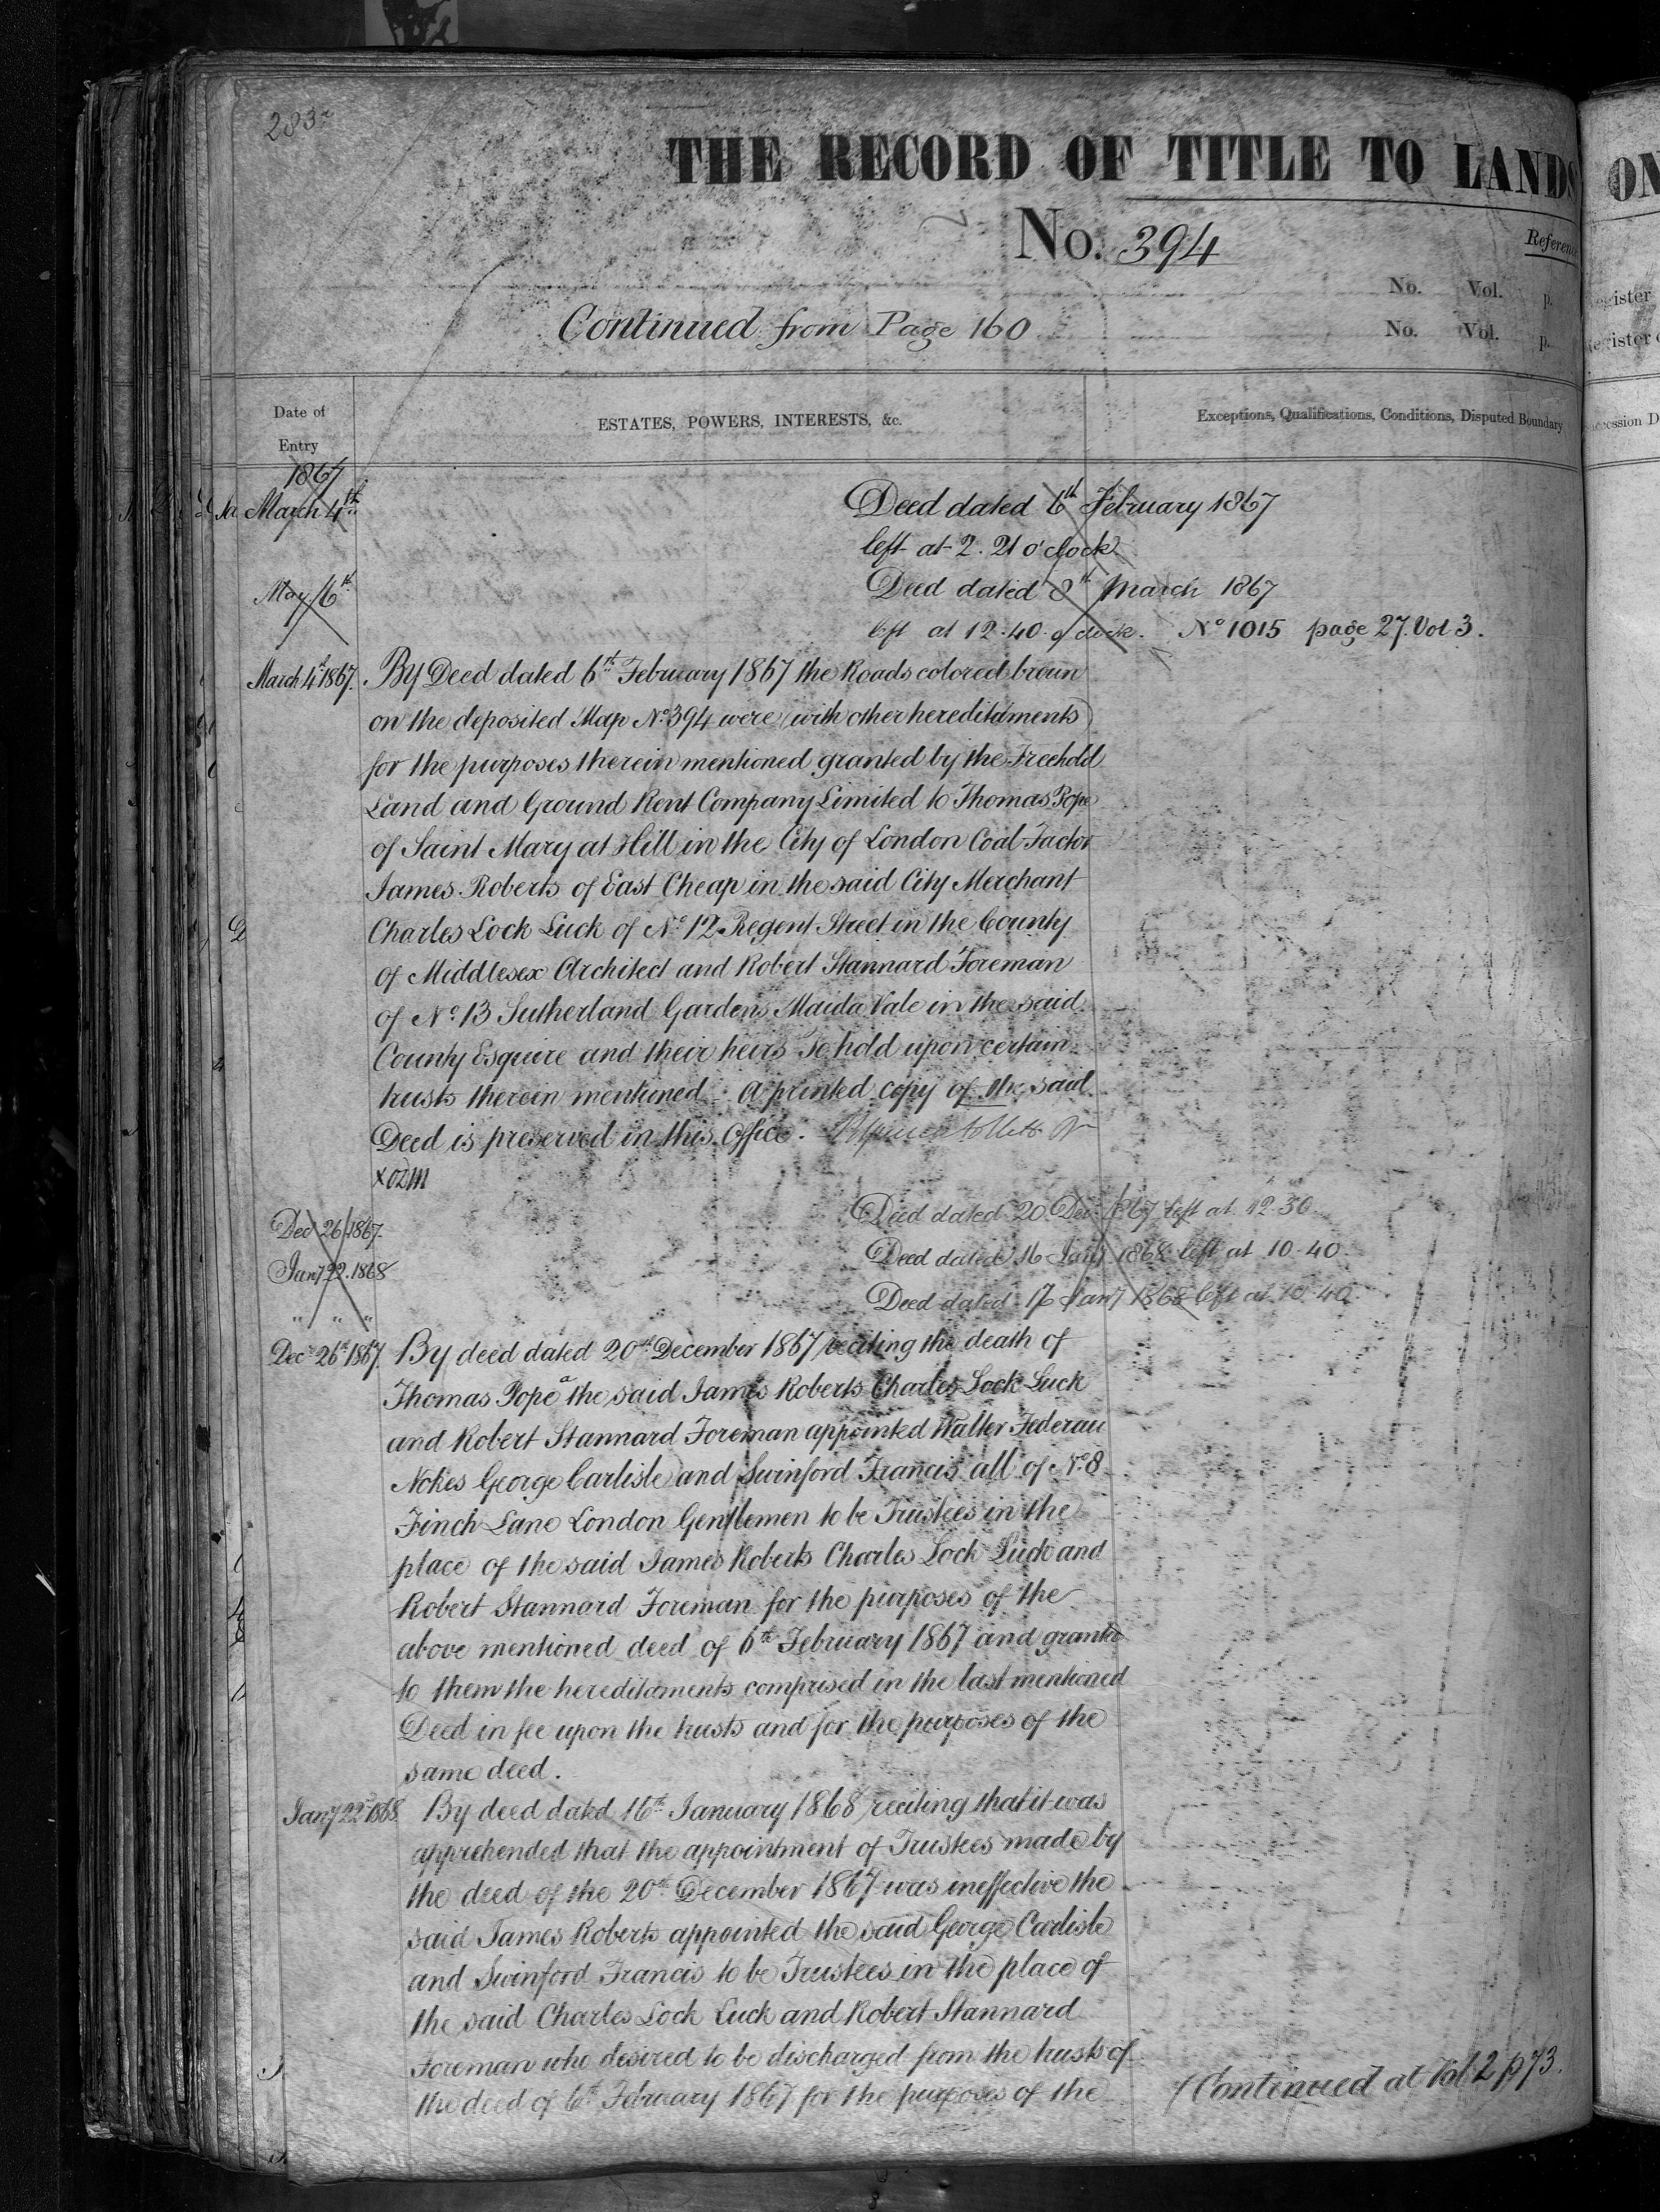 THE RECORD OF TITLE TO LANDS ON
No. 394
Reference
No. Vol. p.
Continued from Page 160
No. Vol. p.
Date of Entry
ESTATES, POWERS, INTERESTS, &c.
Exceptions, Qualifications, Conditions, Disputed Boundary
1867
March 4th Deed dated 6th February 1867
left at 2.21 o'clock
May 6th Deed dated 8th March 1867
left at 12.40 o'clock. No 1015 page 27. Vol 3.
March 4th 1867. By Deed dated 6th February 1867 the Roads colored brown
on the deposited Map No. 394 were (with other hereditaments)
for the purposes therein mentioned granted by the Freehold
Land and Ground Rent Company Limited to Thomas Pope
of Saint Mary at Hill in the City of London Coal Factor
James Roberts of East Cheap in the said City Merchant
Charles Lock Luck of No. 12 Regent Street in the County
of Middlesex Architect and Robert Stannard Foreman
of No. 13 Sutherland Gardens Maida Vale in the said
County Esquire and their heirs To hold upon certain
trusts therein mentioned. A printed copy of the said
Deed is preserved in this Office.
Dec 26/1867. Deed dated 20 Dec 1867 left at 12.30
Jany 22. 1868 Deed dated 16 Jany 1868 left at 10.40.
" " " Deed dated 17 Jany 1868 left at 10.40
Decr 26th 1867. By deed dated 20th December 1867 reciting the death of
Thomas Pope the said James Roberts Charles Lock Luck
and Robert Stannard Foreman appointed Walter Federau
Nokes George Carlisle and Swinford Francis all of No. 8
Finch Lane London Gentlemen to be Trustees in the
place of the said James Roberts Charles Lock Luck and
Robert Stannard Foreman for the purposes of the
above mentioned deed of 6th February 1867 and granted
to them the hereditaments comprised in the last mentioned
Deed in fee upon the trusts and for the purposes of the
same deed.
Jany 22nd 1868 By deed dated 16th January 1868 reciting that it was
apprehended that the appointment of Trustees made by
the deed of the 20th December 1867 was ineffective the
said James Roberts appointed the said George Carlisle
and Swinford Francis to be Trustees in the place of
the said Charles Lock Luck and Robert Stannard
Foreman who desired to be discharged from the trusts of
the deed of 6th February 1867 for the purposes of the
Continued at Vol 2 p 73.